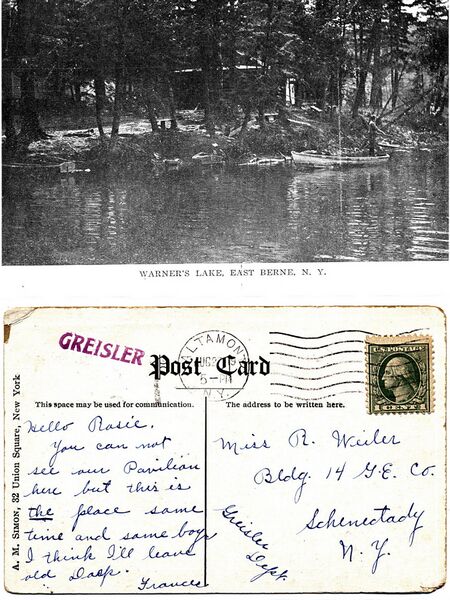 WARNER'S LAKE, EAST BERNE, N. Y.
GREISLER
ALTAMONT
AUG
5-PM
N.Y.
Post Card
U.S. POSTAGE
This space may be used for communication.
The address to be written here.
A. M. SIMON, 32 Union Square, New York
Hello Rosie.
You can not
see our Pavilion
here but this is
the place some
time and some boys
I think I'll leave
old
Frances
Miss R. Weiler
Bldg. 14 G.E. Co.
Schenectady
N. Y.
Greisler
Dept.